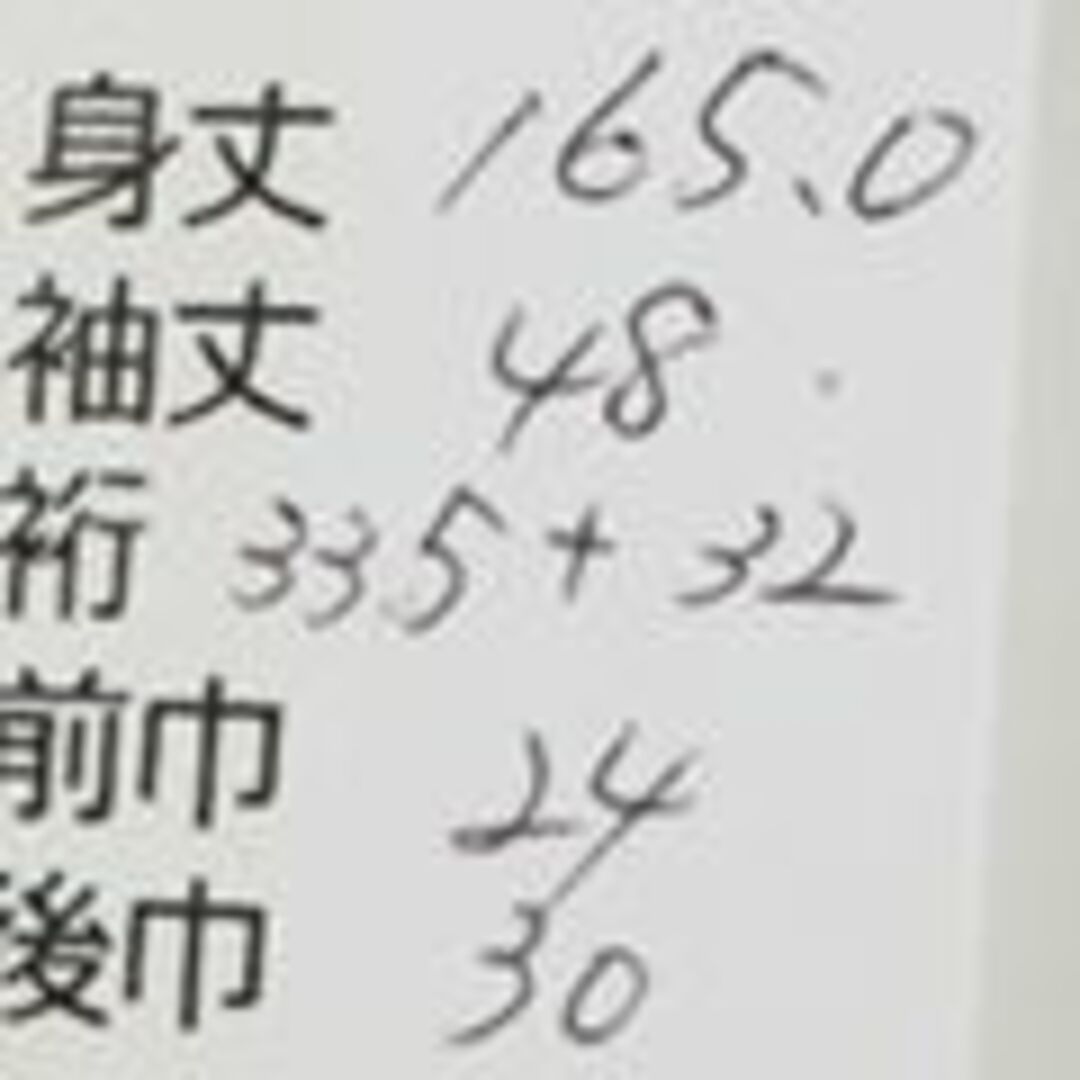 身丈 165.0
袖丈 48
裄 335+32
前巾 24
後巾 30